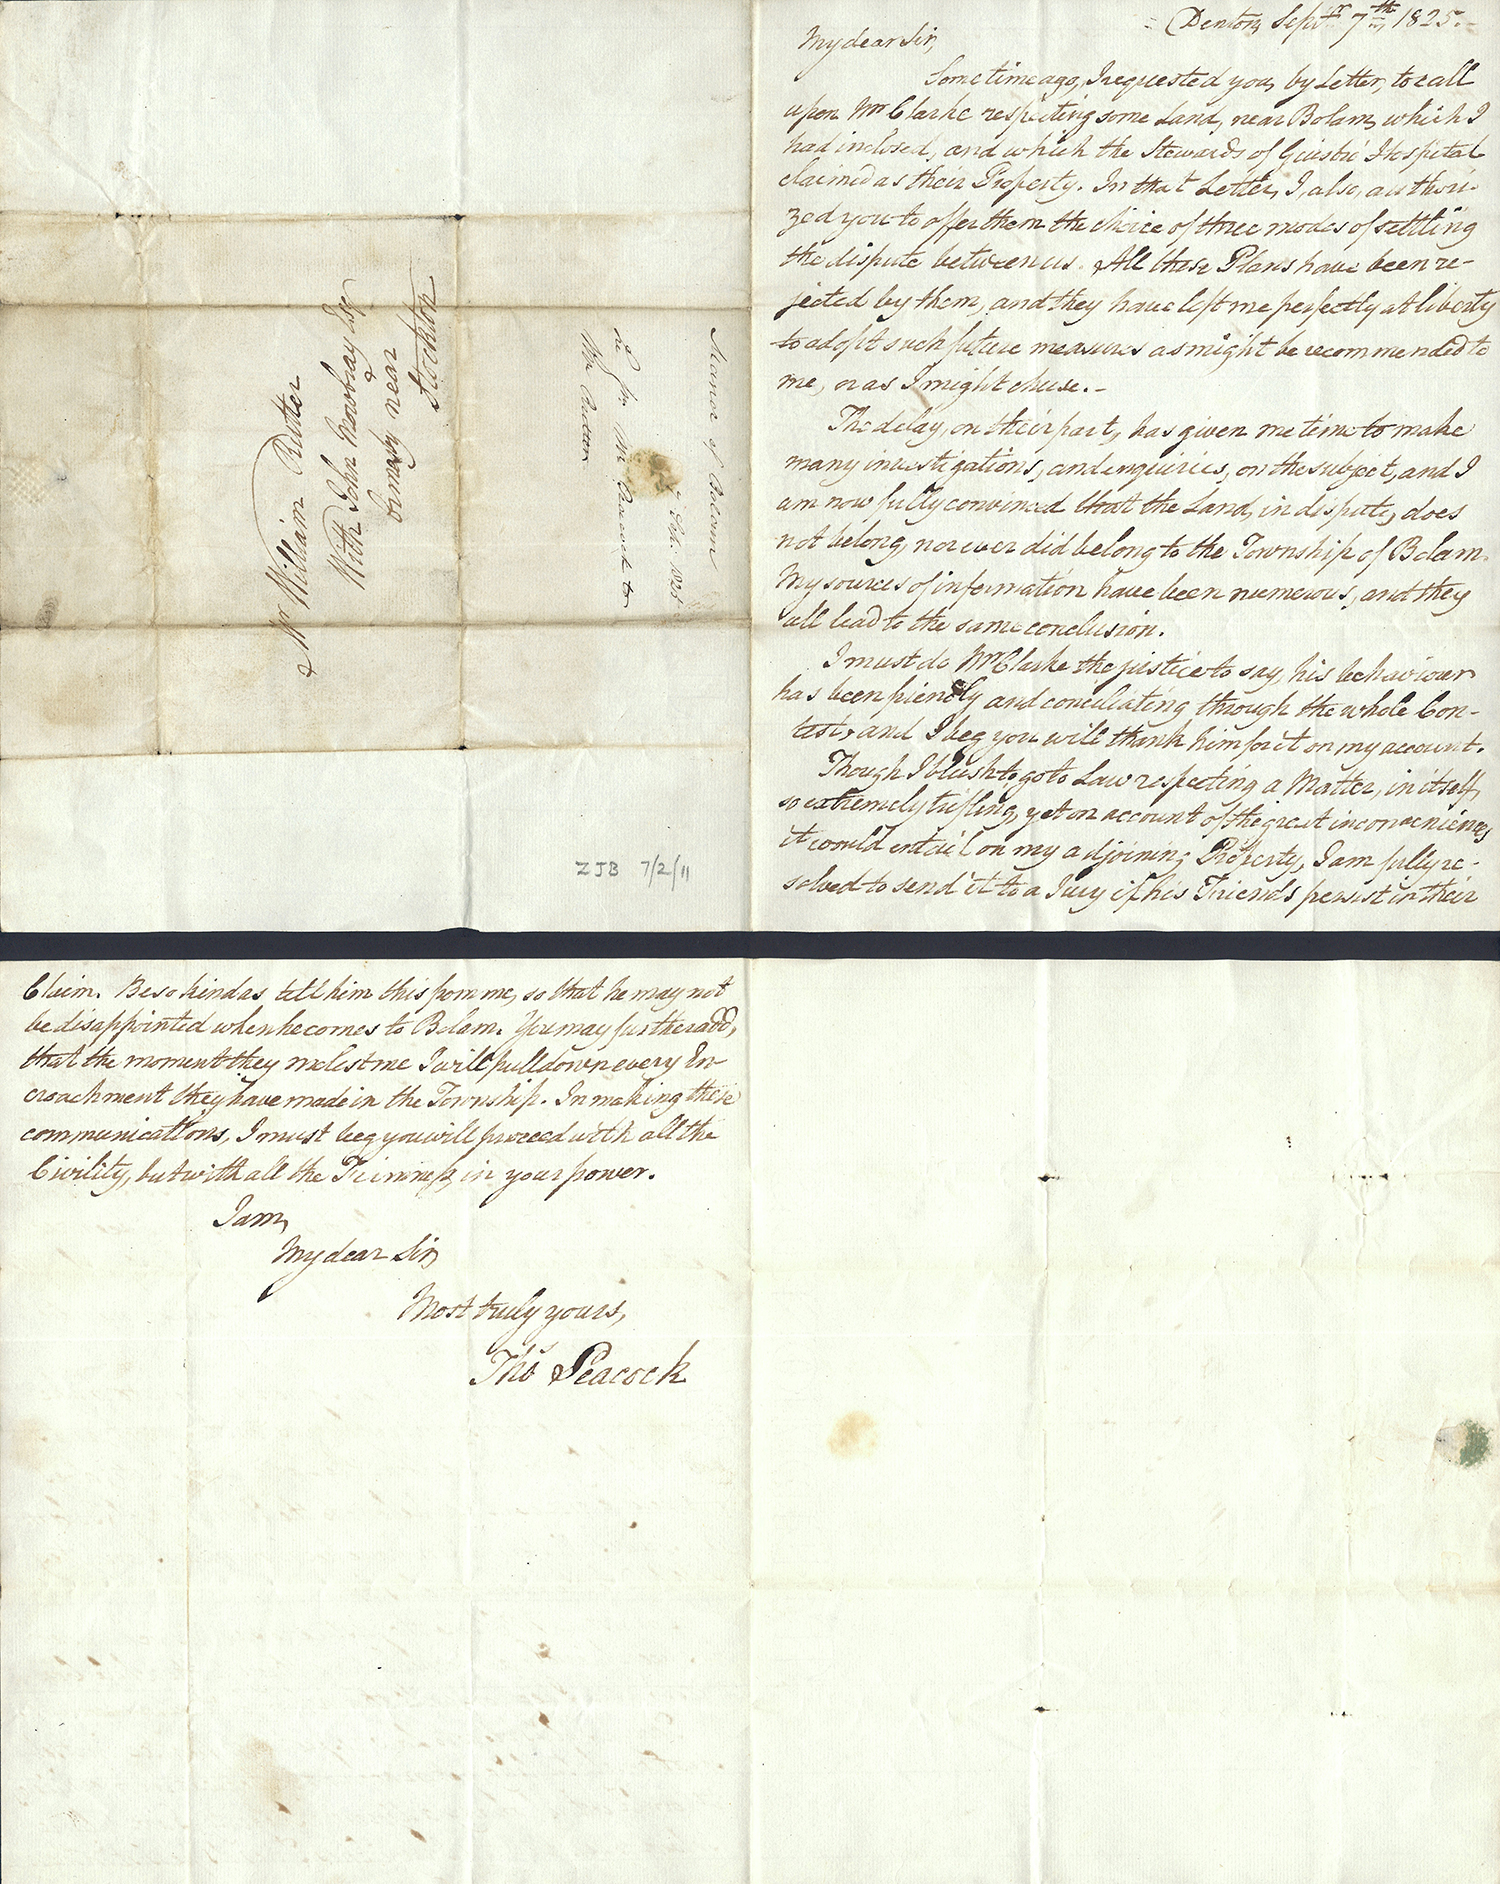 Denton, Septr. 7th, 1825.
My dear Sir,
Some time ago, I requested you, by Letter, to call
upon Mr Clarke respecting some Land, near Bolam, which I
had inclosed, and which the Stewards of Hospital
claimed as their Property. In that Letter, I, also, authori-
zed you to offer them the choice of three modes of settling
the dispute between us. All these Plans have been re-
jected by them, and they have left me perfectly at liberty
to adopt such future measures as might be recommended to
me, or as I might chuse.-
The delay, on their part, has given me time to make
many investigations, and enquiries, on the subject, and I
am now fully convinced that the Land, in dispute, does
not belong, nor ever did belong to the Township of Bolam.
My sources of information have been numerous, and they
all lead to the same conclusion.
I must do Mr Clarke the justice to say, his behaviour
has been friendly and conciliating through the whole Con-
test, and I beg you will thank him for it on my account.
Though I blush to go to Law respecting a Matter, in itself,
so extremely trifling, yet on account of the great inconveniences
it would entail on my adjoining Property, I am fully re-
solved to send it to a Jury if his Friends persist in their
Claim. Be so kind as tell him this from me, so that he may not
be disappointed when he comes to Bolam. You may further add,
that the moment they molest me I will pull down every En-
croachment they have made in the Township. In making these
communications, I must beg you will proceed with all the
Civility, but with all the Firmness, in your power.
I am,
My dear Sir,
Most truly yours,
Thos Peacock
Mr William Rutter
With John Mowbray Esqr
Ormsby near
Stockton
Manor of Bolam
7 Sep. 1825
Lr fm Mr Peacock to
Mr Rutter
ZJB 7/2/11